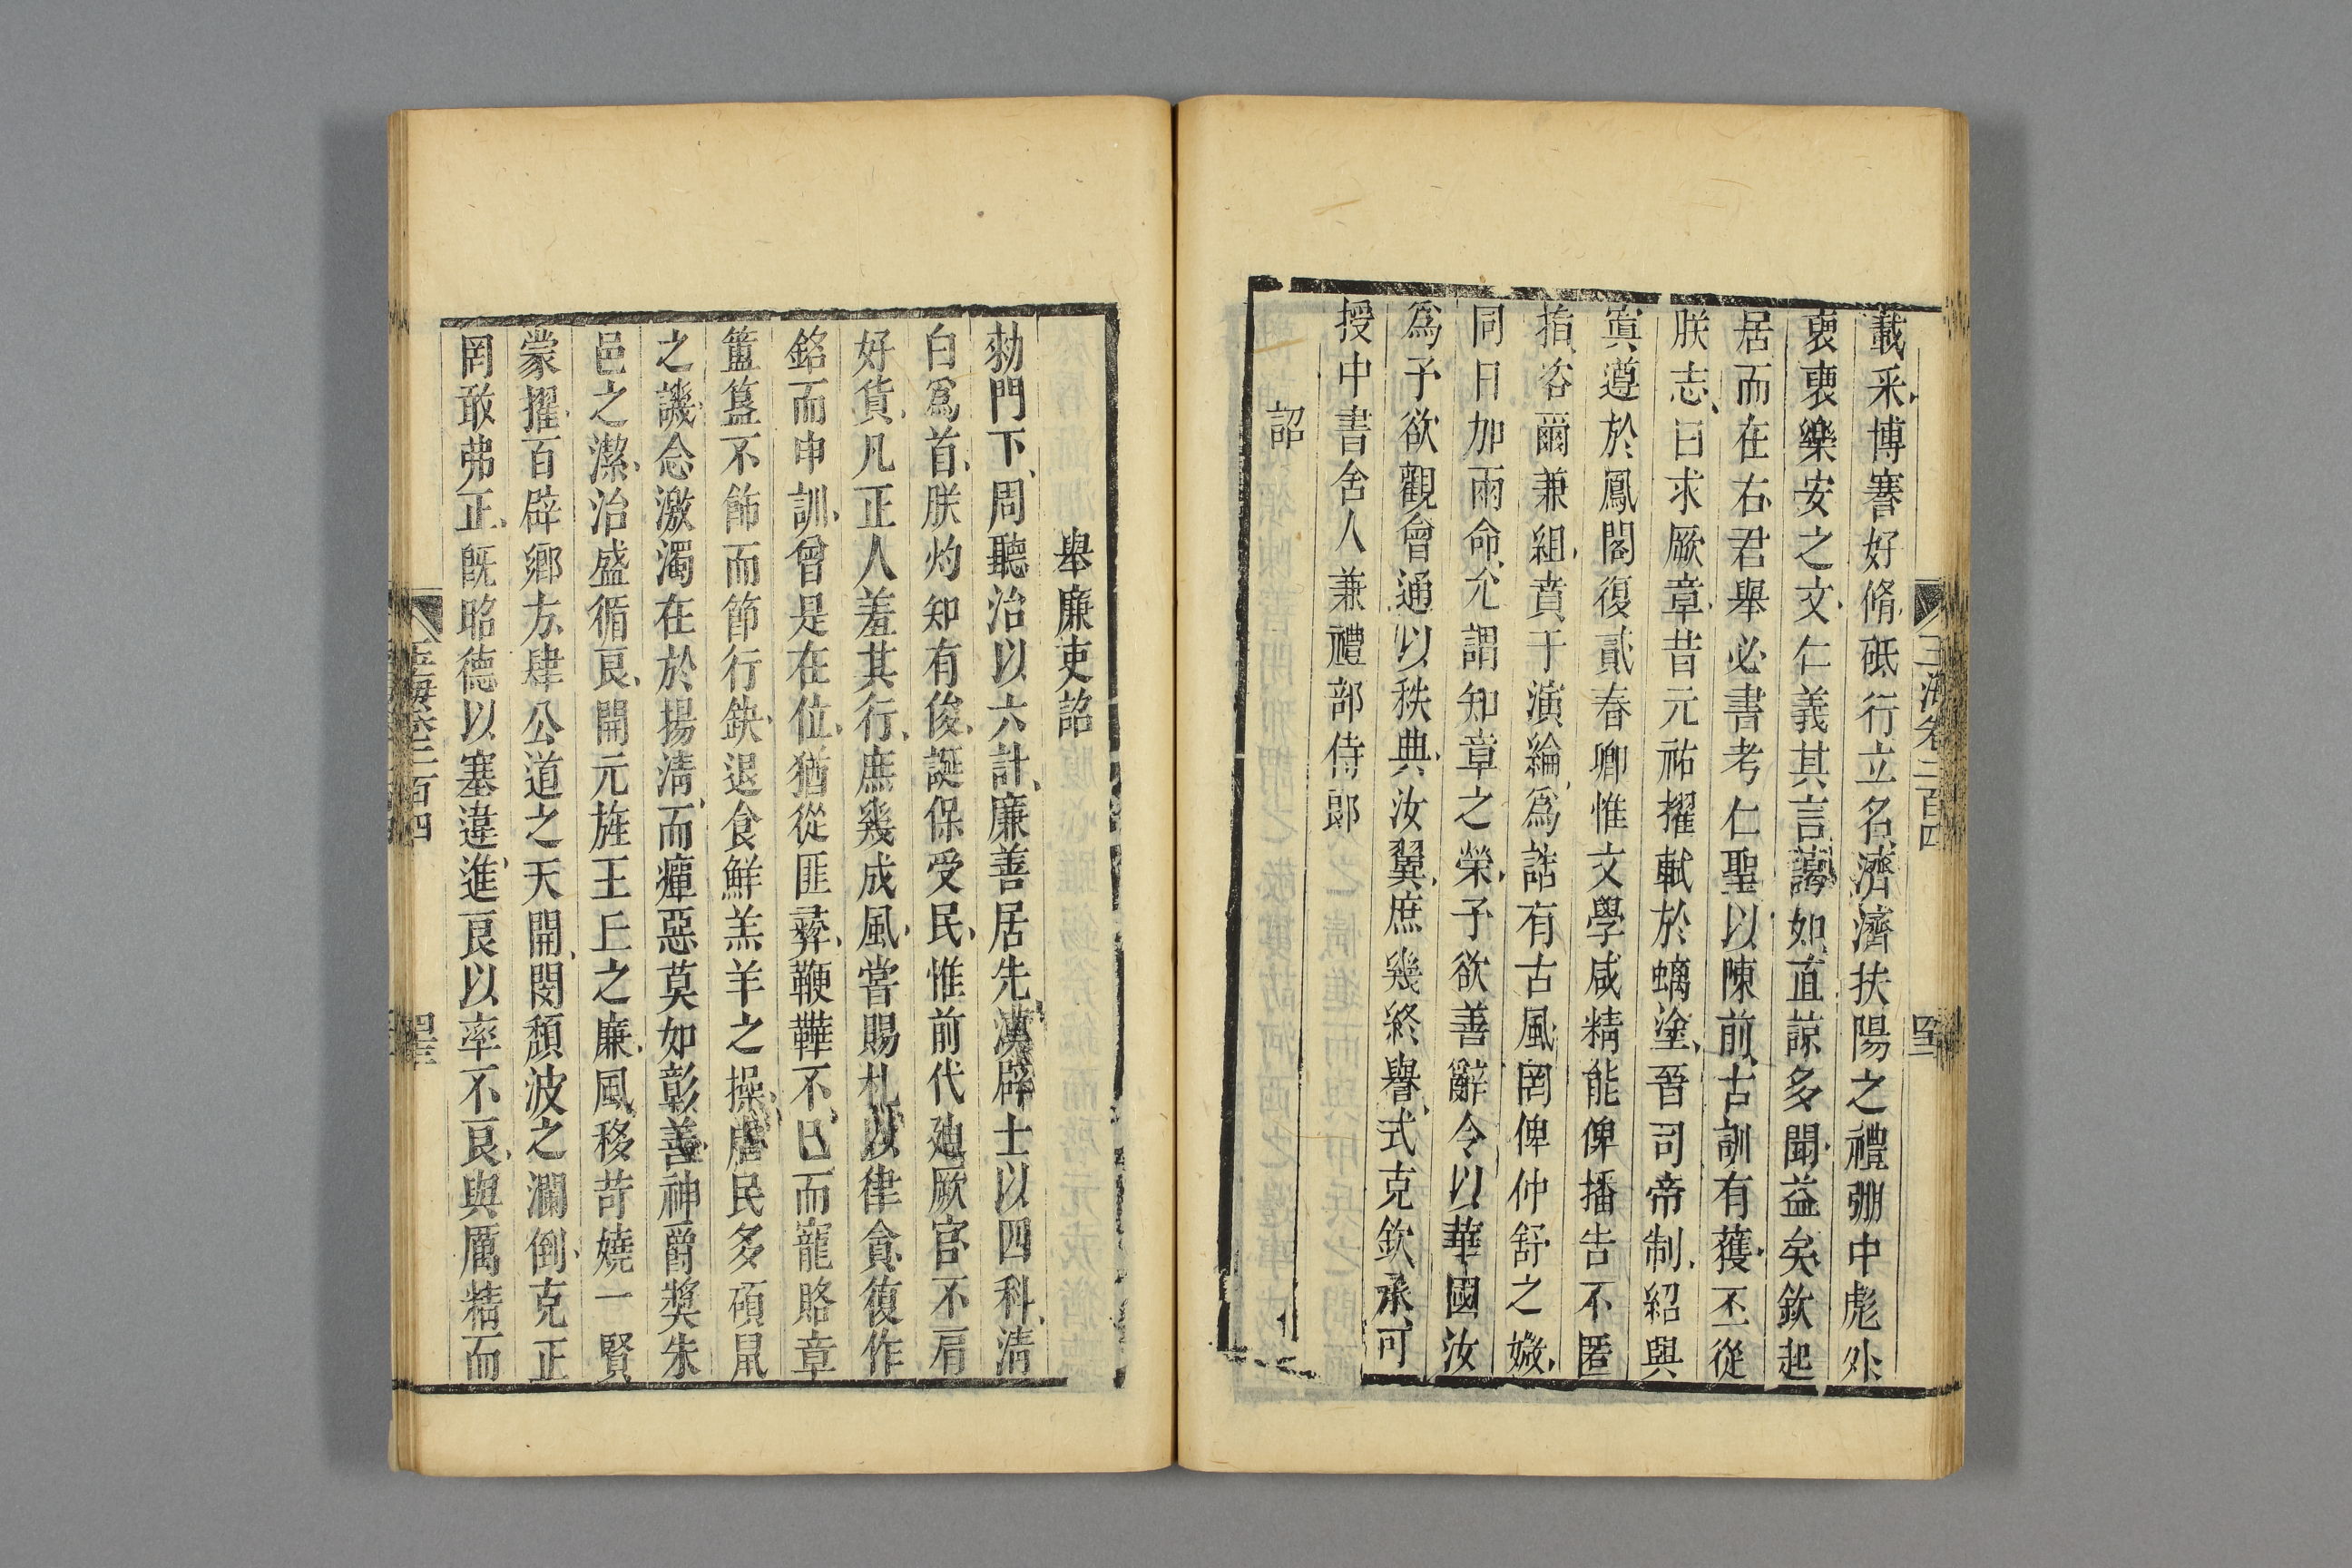 載采博謇好脩砥行立名濟濟扶陽之禮弸中彪外
裒裒樂安之文仁義其言謁如直諒多聞益矣欽起
居而在右君舉必書考仁聖以陳前古訓有獲丕從
朕志日求厥章昔元祐擢軾於螭塗晉司帝制紹與
寘遵於鳳閣復貳春卿惟文學咸精能俾播告不匿
指咨爾兼組賁于演綸爲誥有古風罔俾仲舒之媺
同日加兩命允謂知章之榮予欲善辭令以華國汝
爲予欲觀會通以秩典汝翼庶幾終譽式克欽承可
授中書舍人兼禮部侍郎
詔
玉海卷二百四
舉廉吏詔
勑門下周聽治以六計廉善居先漢辟士以四科清
白爲首朕灼知有俊誕保受民惟前代廸厥官不肩
好貨凡正人羞其行庶幾成風嘗賜札以律貪復作
銘而申訓曾是在位猶從匪彞鞭鞾不已而寵賂章
簠簋不飾而節行缺退食鮮羔羊之操虐民多碩鼠
之譏念激濁在於揚淸而癉惡莫如彰善神爵奬朱
邑之潔治盛循良開元旌王丘之廉風移苛嬈一賢
蒙擢百辟鄉方肆公道之天開閔頹波之瀾倒克正
罔敢弗正旣昭德以塞違進良以率不良與厲精而
玉海卷二百四